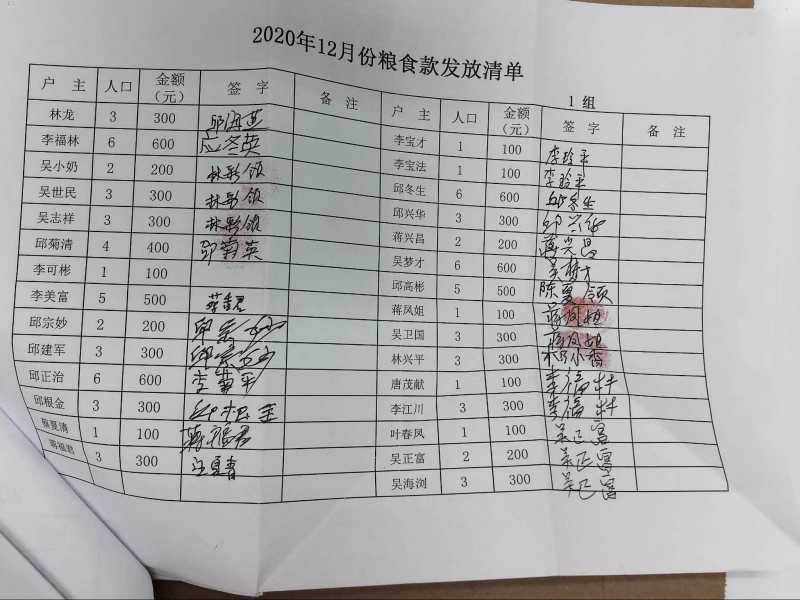 2020年12月份粮食款发放清单
1 组
户 主 人口 金额（元） 签 字 备 注
林龙 3 300 邱海燕
李福林 6 600 应冬英
吴小奶 2 200 林彩领
吴世民 3 300 林彩领
吴志祥 3 300 林彩领
邱菊清 4 400 邱菊英
李可彬 1 100
李美富 5 500
邱宗妙 2 200 邱宗妙
邱建军 3 300 邱宗妙
邱正治 6 600
邱根金 3 300 邱根金
蔡夏清 1 100
蒋福君 3 300
户 主 人口 金额（元） 签 字 备 注
李宝才 1 100
李宝法 1 100
邱冬生 6 600 邱冬生
邱兴华 3 300 邱兴华
蒋兴昌 2 200 蒋兴昌
吴梦才 6 600 吴梦才
邱高彬 5 500 陈夏领
蒋凤姐 1 100 蒋凤姐
吴卫国 3 300 蒋凤姐
林兴平 3 300
唐茂献 1 100 李福牛
李江川 3 300 李福牛
叶春凤 1 100 吴正富
吴正富 2 200 吴正富
吴海浏 3 300 吴正富